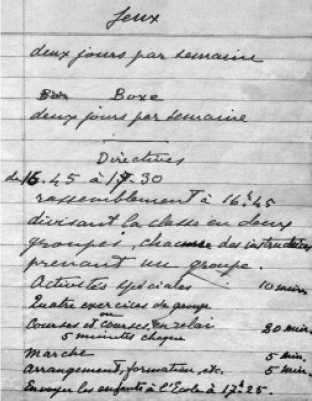 Jeux
deux jours par semaine
Boxe
deux jours par semaine
Directives
de 16.45 à 17.30
rassemblement à 16h45
divisant la classe en deux
groupes, chacune des instructrices
prenant un groupe.
Activités spéciales 10 min
Quatre exercices de groupe
ou
Courses et courses en relai 20 min.
5 minutes chaque
Marche 5 min.
Arrangement, formation, etc. 5 min.
Envoyer les enfants à l'Ecole à 17h25.